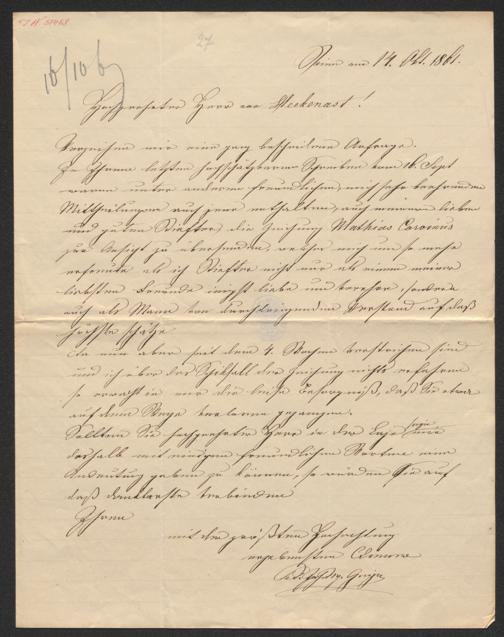 27
16/10 61
Wien am 14. Okt. 1861.
Hochgeehrter Herr von Heckenast!
Verzeihen mir eine ganz bescheidene Anfrage.
In Ihrem letzten hochschätzbaren Schreiben vom 16. Sept
waren unter anderen freundlichen, mich sehr ehrenden
Mittheilungen auch jene enthalten, auch meinem lieben
und guten Stifter die Zeichnung Mathias Corvinus
zur Ansicht zu übersenden, welches mich um so mehr
erfreute als ich Stifter nicht nur als einen meiner
liebsten Freunde innigst liebe und verehre, sondern
auch als Mann von durchdringendem Verstand auf daß
höchste schätze.
Da nun aber seit dem 4. Wochen verstrichen sind
und ich über das Schicksal der Zeichnung nichts erfahren
so erwacht in mir die leise Besorgniß, daß Sie etwa
auf dem Wege verloren gegangen.
Sollten Sie hochgeehrter Herr in der Lage sein mir
deshalb mit einigen freundlichen Worten eine
Andeutung geben zu können, so würden Sie auf
daß dankbarste verbinden
Ihren
mit der größten Hochachtung
ergebensten Diener
Geiger